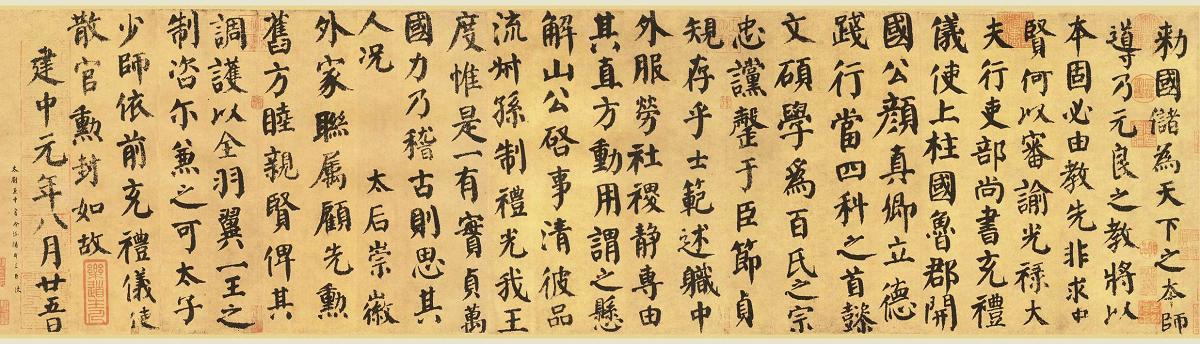 勑國儲為天下之本師
導乃元良之教將以
本固必由教先非求中
賢何以審諭光祿大
夫行吏部尚書充禮
儀使上柱國魯郡開
國公顏真卿立德
踐行當四科之首懿
文碩學為百氏之宗
忠讜罄于臣節貞
規存乎士範述職中
外服勞社稷静專由
其直方動用謂之懸
解山公啓事清彼品
流叔孫制禮光我王
度惟是一有實貞萬
國力乃稽古則思其
人况 太后崇徽
外家聯属顧先勲
舊方睦親賢俾其
調護以全羽翼一王之
制咨尔兼之可太子
少師依前充禮儀使
散官勲封如故
建中元年八月廿五日